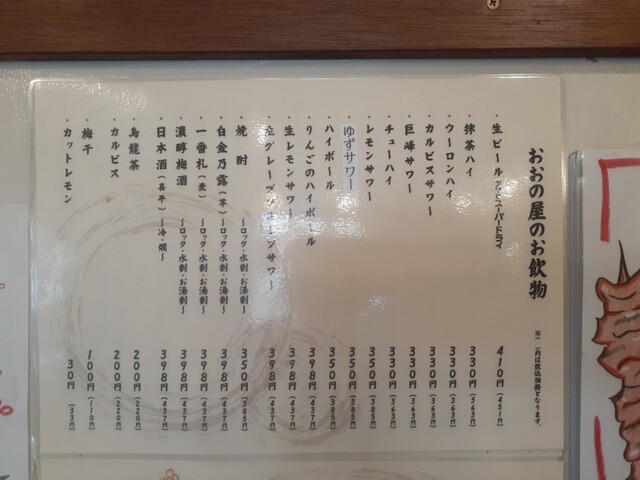 おおの屋のお飲物
※( )内は税込価格となります。
・生ビール アサヒスーパードライ 410円(451円)
・抹茶ハイ 330円(363円)
・ウーロンハイ 330円(363円)
・カルピスサワー 330円(363円)
・巨峰サワー 330円(363円)
・チューハイ 330円(363円)
・レモンサワー 350円(385円)
・ゆずサワー 350円(385円)
・ハイボール 350円(385円)
・りんごのハイボール 398円(437円)
・生レモンサワー 398円(437円)
・生グレープフルーツサワー 398円(437円)
・焼酎 〜ロック・水割・お湯割〜 350円(385円)
・白金乃露(芋) 〜ロック・水割・お湯割〜 398円(437円)
・一番札(麦) 〜ロック・水割・お湯割〜 398円(437円)
・濃醇梅酒 〜ロック・水割・お湯割〜 398円(437円)
・日本酒(喜平) 〜冷・燗〜 398円(437円)
・烏龍茶 200円(220円)
・カルピス 200円(220円)
・梅干 100円(110円)
・カットレモン 30円(33円)